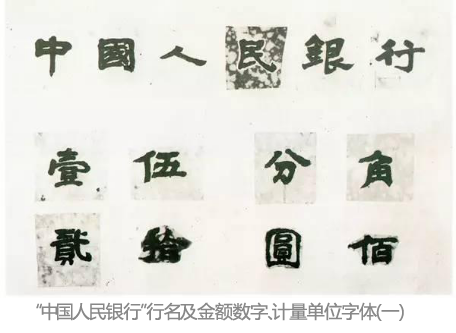 中國人民銀行
壹伍分角
貳拾圓佰
“中国人民银行”行名及金额数字、计量单位字体(一)